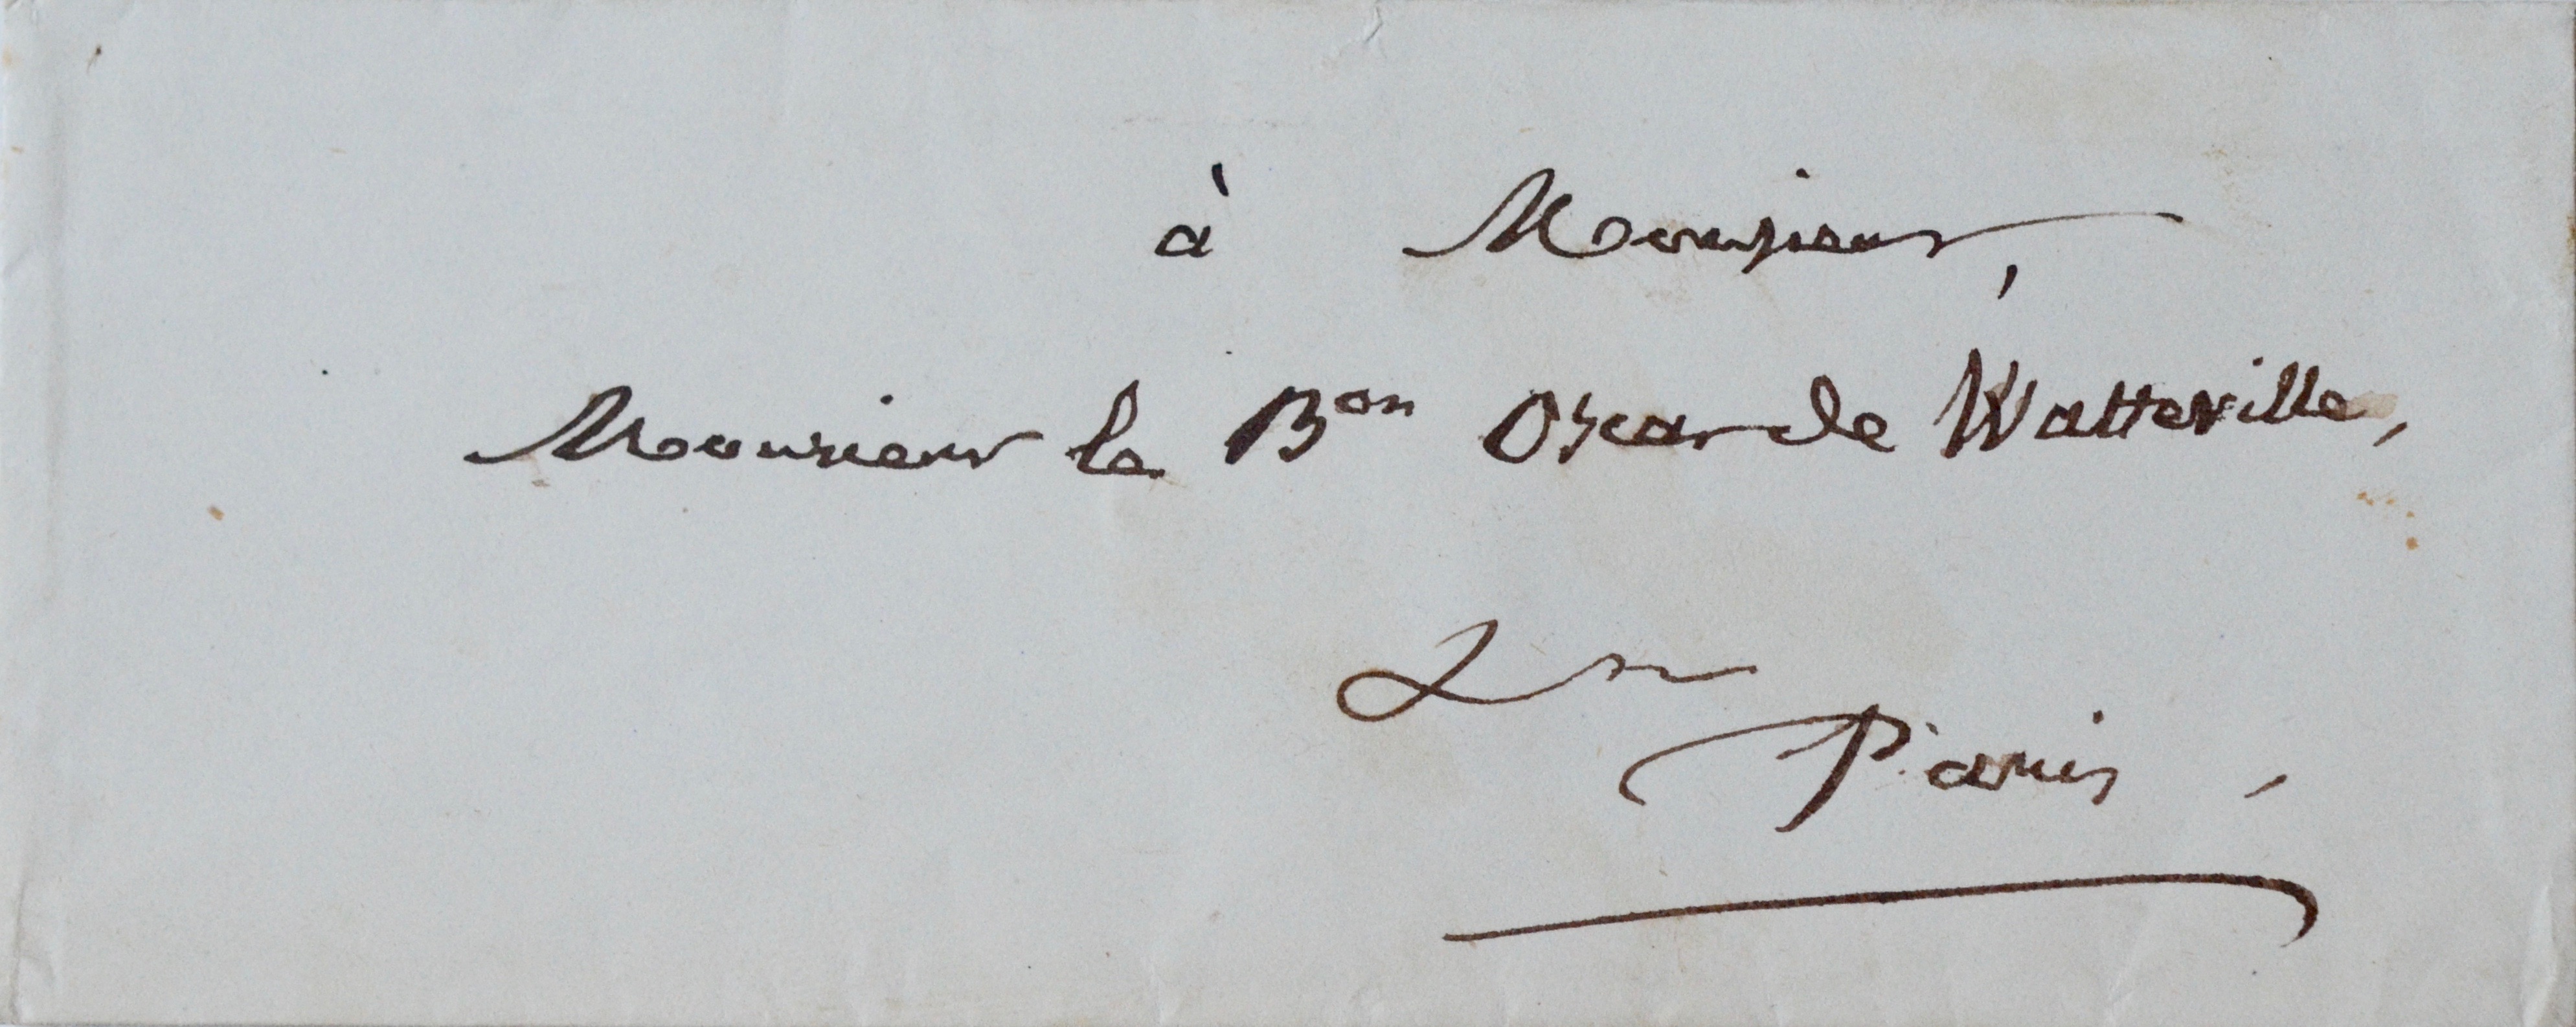 à Monsieur,
Monsieur le Bon Oscar de Watteville,
Paris,